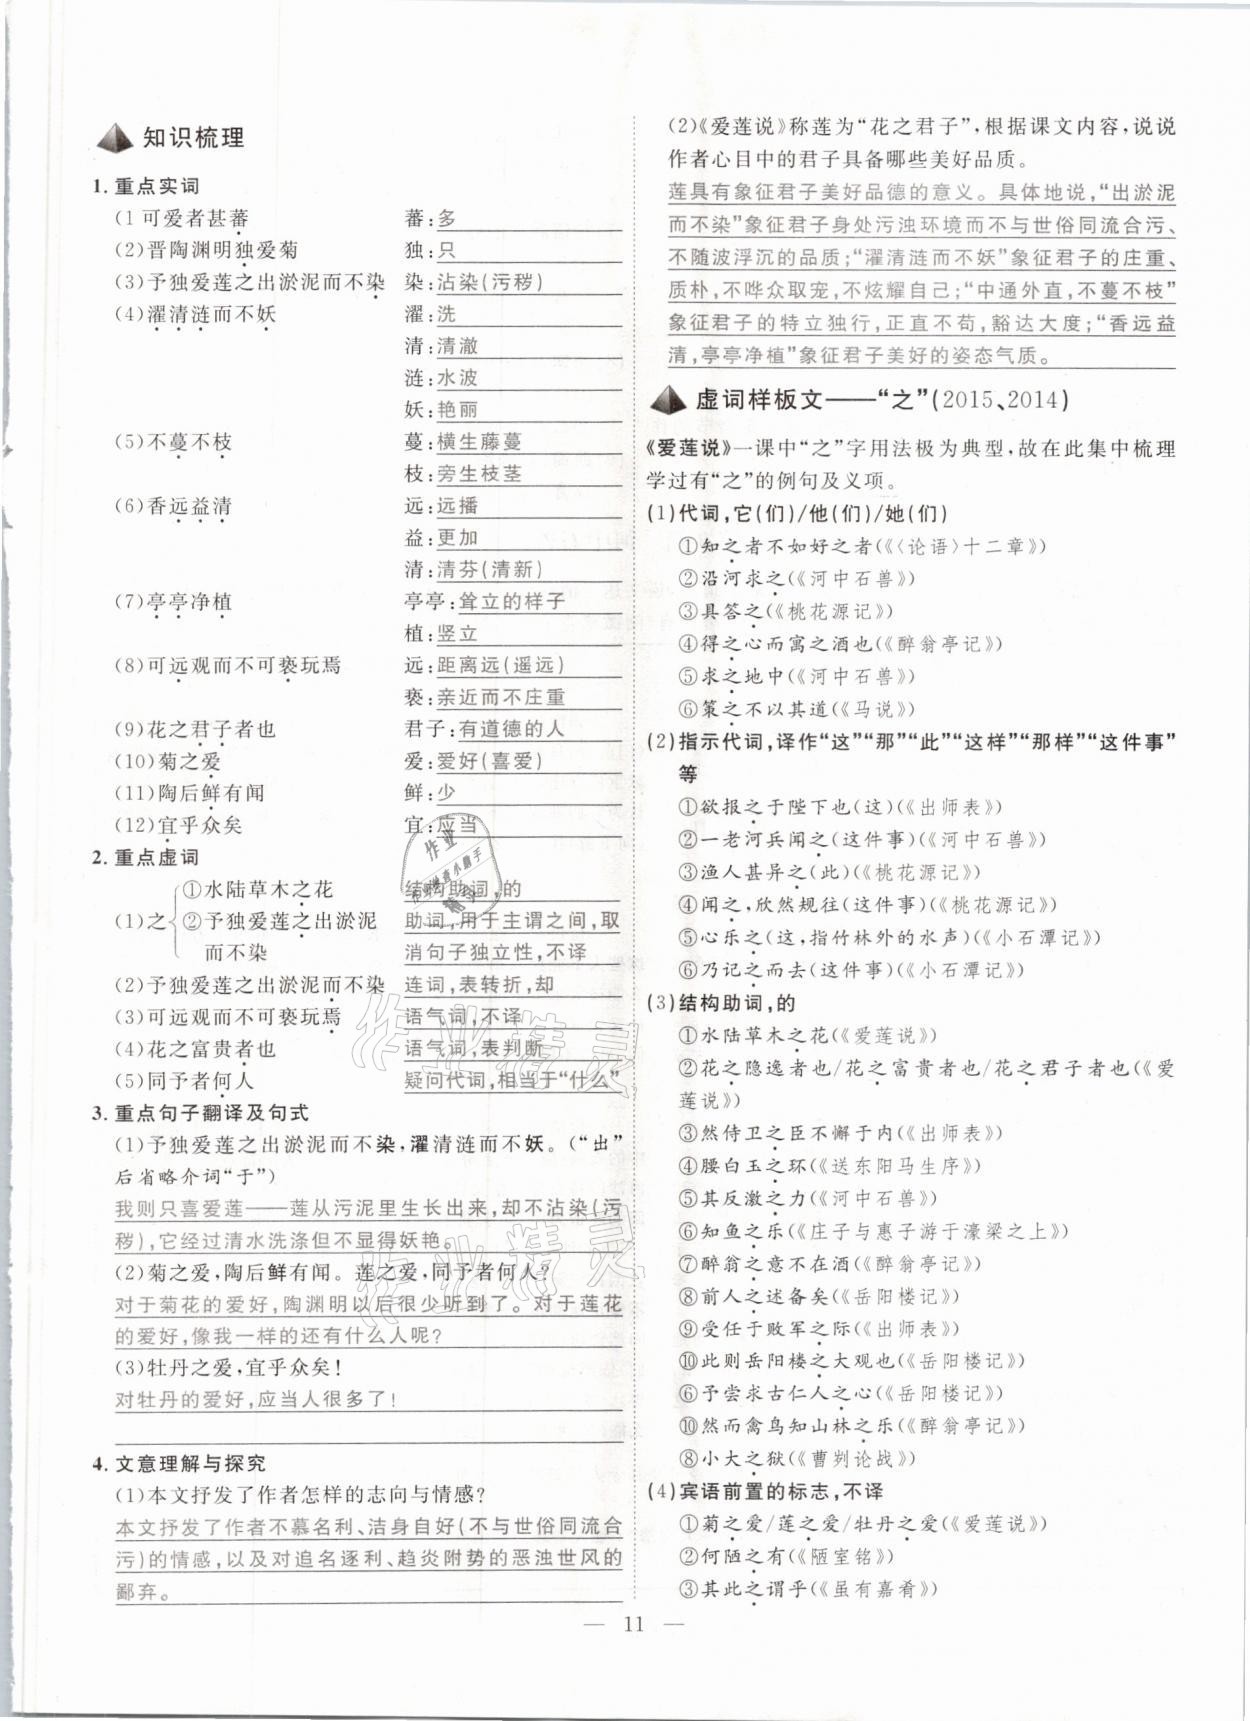 知识梳理
1. 重点实词
(1 可爱者甚蕃 蕃:多
(2)晋陶渊明独爱菊 独:只
(3)予独爱莲之出淤泥而不染 染:沾染(污秽)
(4)濯清涟而不妖 濯:洗
清:清澈
涟:水波
妖:艳丽
(5)不蔓不枝 蔓:横生藤蔓
枝:旁生枝茎
(6)香远益清 远:远播
益:更加
清:清芬(清新)
(7)亭亭净植 亭亭:耸立的样子
植:竖立
(8)可远观而不可亵玩焉 远:距离远(遥远)
亵:亲近而不庄重
(9)花之君子者也 君子:有道德的人
(10)菊之爱 爱:爱好(喜爱)
(11)陶后鲜有闻 鲜:少
(12)宜乎众矣 宜:应当
2. 重点虚词
①水陆草木之花 结构助词,的
(1)之 ②予独爱莲之出淤泥 助词,用于主谓之间,取
而不染 消句子独立性,不译
(2)予独爱莲之出淤泥而不染 连词,表转折,却
(3)可远观而不可亵玩焉 语气词,不译
(4)花之富贵者也 语气词,表判断
(5)同予者何人 疑问代词,相当于“什么”
3. 重点句子翻译及句式
(1)予独爱莲之出淤泥而不染,濯清涟而不妖。(“出”
后省略介词“于”)
我则只喜爱莲——莲从污泥里生长出来,却不沾染(污
秽),它经过清水洗涤但不显得妖艳。
(2)菊之爱,陶后鲜有闻。莲之爱,同予者何人?
对于菊花的爱好,陶渊明以后很少听到了。对于莲花
的爱好,像我一样的还有什么人呢?
(3)牡丹之爱,宜乎众矣!
对牡丹的爱好,应当人很多了!
4. 文意理解与探究
(1)本文抒发了作者怎样的志向与情感?
本文抒发了作者不慕名利、洁身自好(不与世俗同流合
污)的情感,以及对追名逐利、趋炎附势的恶浊世风的
鄙弃。
(2)《爱莲说》称莲为“花之君子”,根据课文内容,说说
作者心目中的君子具备哪些美好品质。
莲具有象征君子美好品德的意义。具体地说,“出淤泥
而不染”象征君子身处污浊环境而不与世俗同流合污、
不随波浮沉的品质;“濯清涟而不妖”象征君子的庄重、
质朴,不哗众取宠,不炫耀自己;“中通外直,不蔓不枝”
象征君子的特立独行,正直不苟,豁达大度;“香远益
清,亭亭净植”象征君子美好的姿态气质。
虚词样板文——“之”(2015、2014)
《爱莲说》一课中“之”字用法极为典型,故在此集中梳理
学过有“之”的例句及义项。
(1)代词,它(们)/他(们)/她(们)
①知之者不如好之者(《〈论语〉十二章》)
②沿河求之(《河中石兽》)
③具答之(《桃花源记》)
④得之心而寓之酒也(《醉翁亭记》)
⑤求之地中(《河中石兽》)
⑥策之不以其道(《马说》)
(2)指示代词,译作“这”“那”“此”“这样”“那样”“这件事”
等
①欲报之于陛下也(这)(《出师表》)
②一老河兵闻之(这件事)(《河中石兽》)
③渔人甚异之(此)(《桃花源记》)
④闻之,欣然规往(这件事)(《桃花源记》)
⑤心乐之(这,指竹林外的水声)(《小石潭记》)
⑥乃记之而去(这件事)(《小石潭记》)
(3)结构助词,的
①水陆草木之花(《爱莲说》)
②花之隐逸者也/花之富贵者也/花之君子者也(《爱
莲说》)
③然侍卫之臣不懈于内(《出师表》)
④腰白玉之环(《送东阳马生序》)
⑤其反激之力(《河中石兽》)
⑥知鱼之乐(《庄子与惠子游于濠梁之上》)
⑦醉翁之意不在酒(《醉翁亭记》)
⑧前人之述备矣(《岳阳楼记》)
⑨受任于败军之际(《出师表》)
⑩此则岳阳楼之大观也(《岳阳楼记》)
⑥予尝求古仁人之心(《岳阳楼记》)
⑩然而禽鸟知山林之乐(《醉翁亭记》)
⑧小大之狱(《曹刿论战》)
(4)宾语前置的标志,不译
①菊之爱/莲之爱/牡丹之爱(《爱莲说》)
②何陋之有(《陋室铭》)
③其此之谓乎(《虽有嘉肴》)
— 11 —
作业精灵
作业精灵